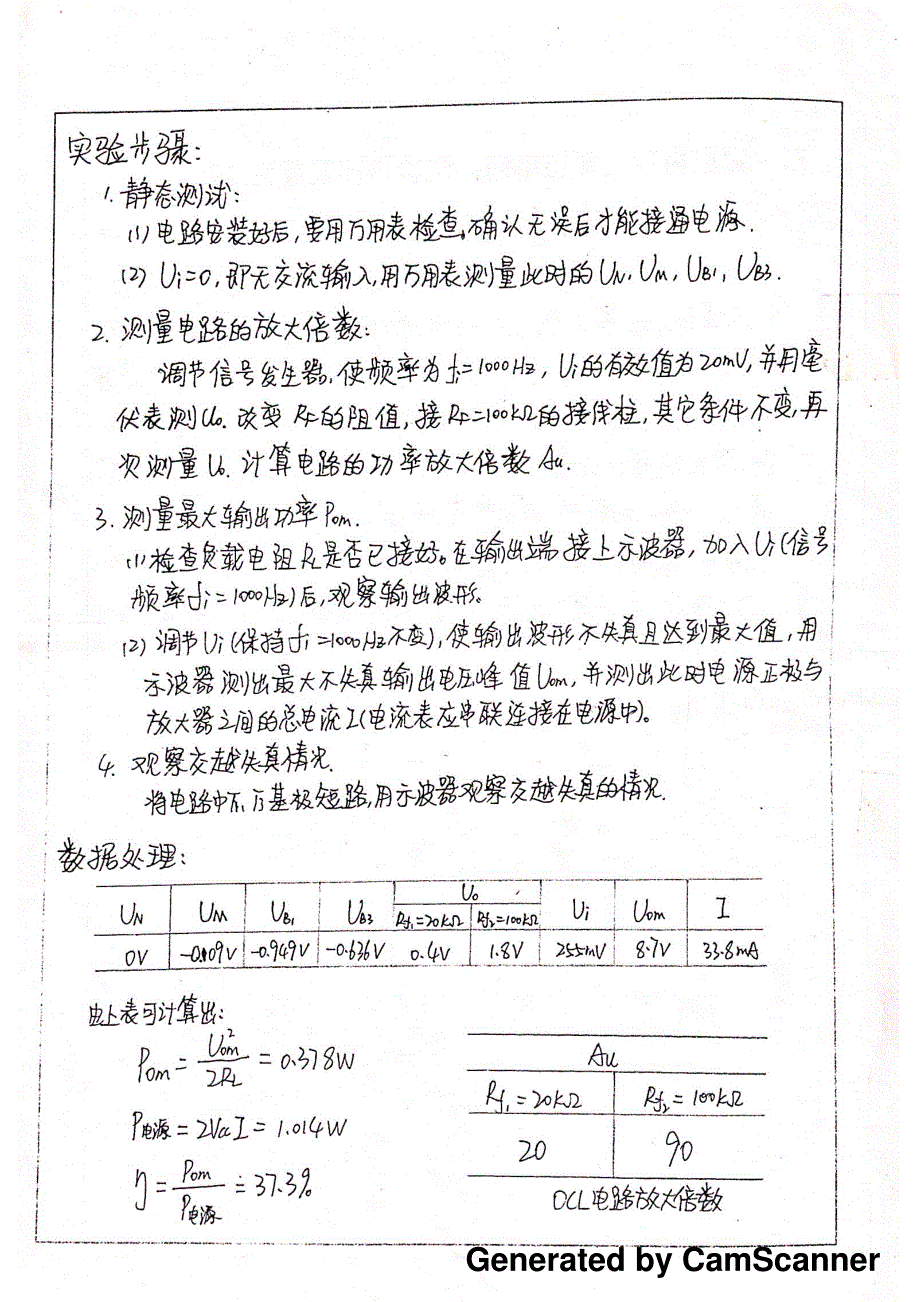 实验步骤:
1. 静态测试:
(1) 电路安装好后,要用万用表检查。确认无误后才能接通电源.
(2) Ui=0,即无交流输入,用万用表测量此时的UN, UM, UB1, UB3.
2. 测量电路的放大倍数:
调节信号发生器,使频率为fi=1000Hz, Ui的有效值为20mV,并用毫
伏表测Uo. 改变Rf的阻值,接Rf=100kΩ的接线柱,其它条件不变,再
次测量Uo. 计算电路的功率放大倍数Au.
3. 测量最大输出功率Pom.
(1) 检查负载电阻RL是否已接好。在输出端接上示波器,加入Ui(信号
频率fi=1000Hz)后,观察输出波形。
(2) 调节Ui(保持fi=1000Hz不变),使输出波形不失真且达到最大值,用
示波器测出最大不失真输出电压峰值Uom,并测出此时电源正极与
放大器之间的总电流I(电流表应串联连接在电源中)。
4. 观察交越失真情况.
将电路中 基极短路,用示波器观察交越失真的情况.
数据处理:
UN UM UB1 UB3 Uo Ui Uom I
Rf1=20kΩ Rf2=100kΩ
0V -0.009V -0.949V -0.636V 0.4V 1.8V 255mV 8.7V 33.8mA
由上表可计算出:
Pom = Uom²/2RL = 0.378W
P电源 = 2VccI = 1.014W
η = Pom/P电源 = 37.3%
Au
Rf1=20kΩ Rf2=100kΩ
20 90
OCL电路放大倍数
Generated by CamScanner